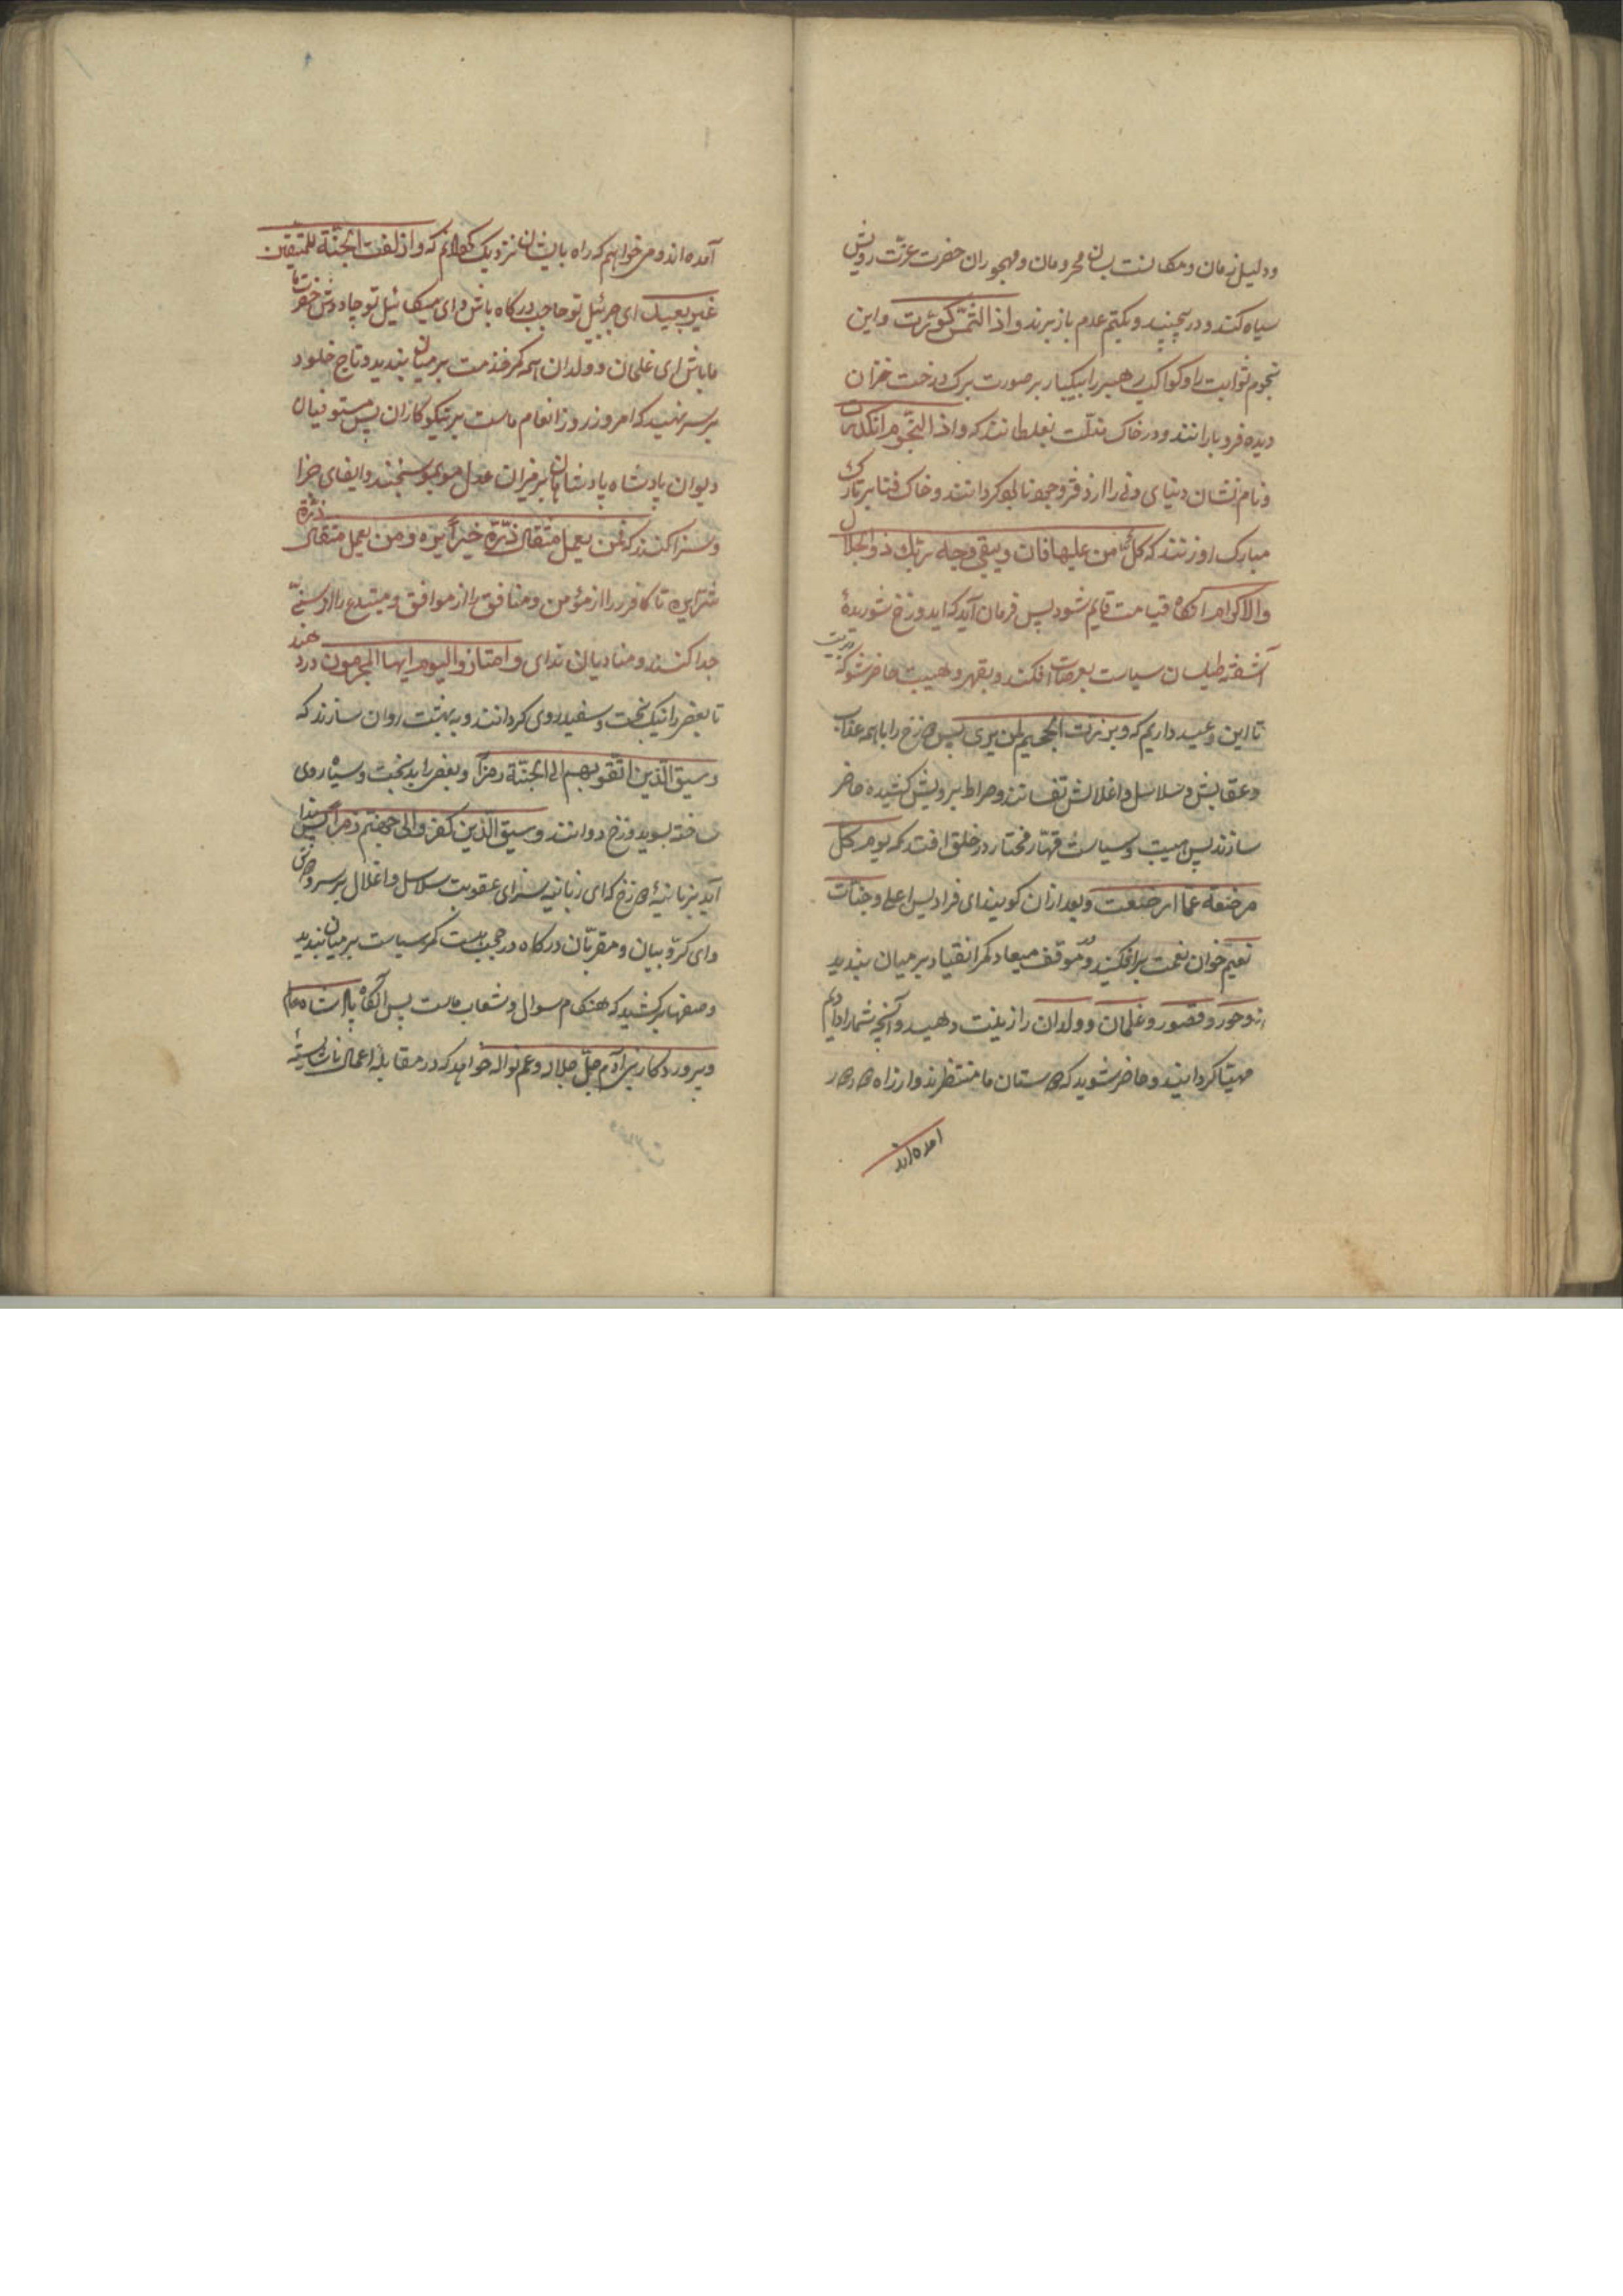 ودلیل زمان ومکانست بسان محرومان ومهجوران حضرت عزت رویش
سیاه کنند ودر پیچند وبکتم عدم باز برند واذا الشمس کورت واین
نجوم ثوابت را وکواکب رهبر را بیکبار بر صورت برک درخت خزان
دیده فرو بارانند ودر خاک مذلت بغلطانند که واذا النجوم انکدرت
ونام نشان دنیای دنی را از دفتر وجود نابود کردانند وخاک فنا بر تارک
مبارک او زنند که کل من علیها فان ویبقی وجه ربک ذو الجلال
والاکرام آنکاه قیامت قایم شود پس فرمان آید که ای دوزخ شوریدهٔ
آشفته طیلسان سیاست بعرصات افکند وبقهر ولهیب حاضر شو که
تا این وعید داریم که وبرزت الجحیم لمن یری پس دوزخ را با همه عذاب
وعقابش وسلاسل واغلالش وصراط بر رویش کشیده حاضر
سازند پس هیبت وسیاست قهار مختار در خلق افتد که یوم کل
مرضعة عما ارضعت وبعد از آن کویند ای فرادیس اعلی وجنات
نعیم خوان نعمت برافکنید ودر موقف میعاد کمر انقیاد بر میان بندید
وحور وقصور وغلمان وولدان را زینت دهید وآنچه شما را داده‌ام
مهیا کردانید وحاضر شوید که دوستان ما منتظرند واز راه دور
آمده‌اند
آمده‌اند ومی خواهم که راه بایشان نزدیک کردانم که وازلفت الجنة للمتقین
غیر بعید ای جبرئیل تو حاجب درکاه باش وای میکائیل تو چاووش حضرت ما
ما باش ای غلمان وولدان همه کمر خدمت بر میان بندید وتاج خلود
بر سر نهید که امروز روز انعام ماست بر نیکو کاران پس مستوفیان
دیوان پادشاه پادشاهان بر میزان عدل موبمو سنجند وایفای جزا
وسزا کنند که فمن یعمل مثقال ذرة خیراً یره ومن یعمل مثقال ذرة
شراً یره تا کافر را از مؤمن ومنافق را از موافق ومبتدع را از سنی
جدا کنند ومنادیان ندای وامتازوا الیوم ایها المجرمون در دهند
تا بعضی را نیک بخت وسفید روی کردانند وبه بهشت روان سازند که
وسیق الذین اتقوا ربهم الی الجنة زمراً وبعضی را بدبخت وسیاه روی
ساخته بسوی دوزخ دوانند وسیق الذین کفروا الی جهنم زمراً پس ندا
آید بزبانیهٔ دوزخ که ای زبانیه سزای عقوبت سلاسل واغلال بر سر
وای کروبیان ومقربان درکاه کمر سیاست بر میان بندید
وصفها برکشید که هنکام سوال پس آنکاه پادشاه عالم
وپروردکار بنی آدم جل جلاله وعم نواله خواهد که در مقابلهٔ اعمال ناشایسته